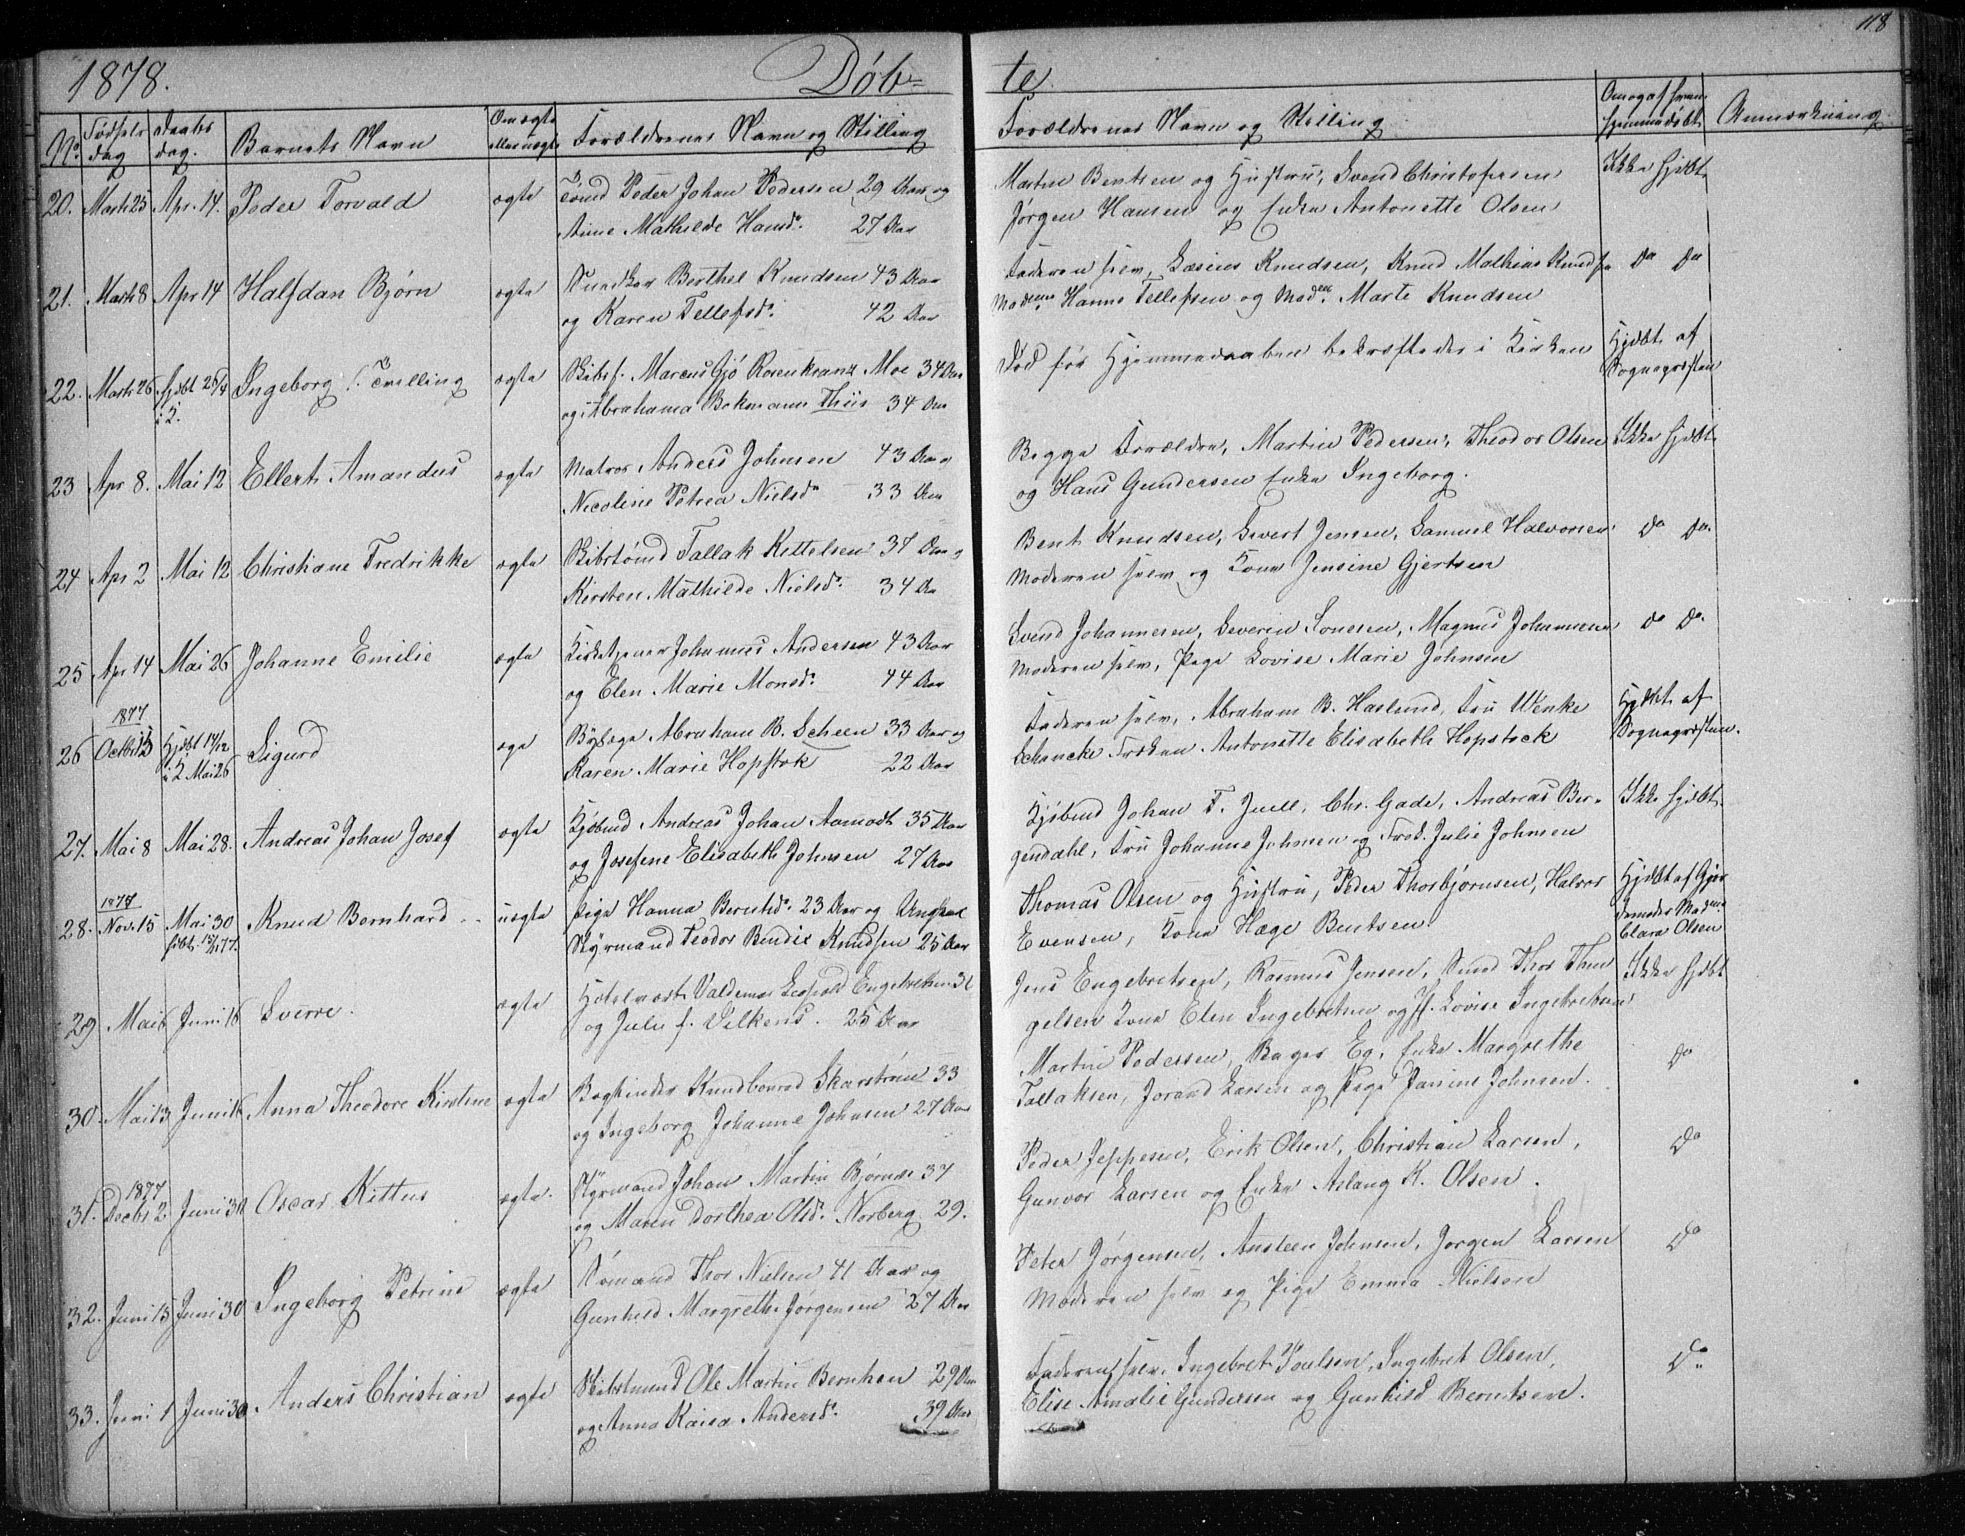 118
1878.
Døb-
te.
No
Fødsels dag
Daabs dag.
Barnets Navn
Om ægte eller uægte
Forældrenes Navn og Stilling
Forældrenes Navn og Stilling
Om og af hvem hjemmedøbt
Anmærkning.
20. Marts 25 Apr. 14. Peder Torvald ægte Peder Johan Pedersen 29 Aar og
Mathilde Hansd. 27 Aar
Martin Bentsen og Hustru, Svend Christofersen Ikke hjdbt.
Jørgen Hansen og Enke Antonette Olsen
21. Marts 8 Apr 14 Halfdan Bjørn ægte Berthel Knudsen 43 Aar
og Karen Tellefsd. 42 Aar
Faderen selv, Knudsen, Knud Mathias Do Do
Hanne Tellefsen og Marte Knudsen
22. Marts 26 Ingeborg Tvilling ægte Skibsf. Marcus Gjø Rosenkranz Moe 34 Aar
og Abrahama Bekmann Thiis 34 Aar
Død før Hjemmedaaben bekræftedes i Kirken Hjdbt. af
Sognepræsten
23 Apr 8. Mai 12 Ellert Amandus ægte Matros Anders Johnsen 43 Aar
Nicoline Petrea Nielsd. 33 Aar
Begge Forældre, Martin Pedersen, Theodor Olsen Ikke hjdbt.
og Hans Gundersen Enke Ingeborg.
24 Apr 2 Mai 12 Christiane Fredrikke ægte Skibstømd Tallak Kittelsen 37 Aar
Kirsten Mathilde Nielsd. 34 Aar
Bent Knudsen, Sivert Jensen, Samuel Halvorsen Do Do.
Moderen selv og Kone Jensine Gjertsen
25 Apr 14 Mai 26 Johanne Emilie ægte Kirketjener Johannes Andersen 43 Aar
og Elen Marie Monsd. 44 Aar
Svend Johannesen, Severin Tonesen, Magnus Johannesen Do Do.
Moderen selv, Pige Lovise Marie Johnsen
1877
26 Octbr 13 Hjdbt 14/12 i K Mai 26 Sigurd Abraham B. Scheen 33 Aar og
Karen Marie Hopstok 22 Aar
Faderen selv, Abraham B. Haslund, Fru Wenke Hjdbt. af
Schancke Frøken Antonette Elisabeth Hopstock Sognepræsten.
27. Mai 8 Mai 28. Andreas Johan Josef ægte Kjøbmd Andreas Johan Aamodt 35 Aar
og Josefine Elisabeth Johnsen 27 Aar
Kjøbmd Johan F. Juell, Chr. Gade, Andreas Ber- Ikke hjdbt.
gendahl, Fru Johanne Johnsen og Frøk. Julie Johnsen
1877
28. Nov. 15 Mai 30 Knud Bernhard uægte Pige Hanna Berntsd. 23 Aar og Ungkarl
Styrmand Teodor Bendix Knudsen 25 Aar
Thomas Olsen og Hustru, Peder Thorbjørnsen, Halvor Hjdbt af
Evensen, Kone Hæge Bentsen Clara Olsen
29 Mai 6 Juni 16 Sverre. ægte Hotelvært Valdemar Leopold Engebretsen 31
og Julie f. Vilkens. 25 Aar
Jens Engebretsen, Rasmus Jensen, Smed Thor Ikke hjdbt
gelsen Kone Elen Ingebretsen og Lovise Ingebretsen
30. Mai 13 Juni 16 Anna Theodore Kirstine ægte Bogbinder Skarstrøm 33
og Ingeborg Johanne Johnsen 27 Aar
Martin Pedersen, Bager Eg, Enke Margrethe Do
Tallaksen, Jorand Larsen og Pige Janine Johnsen.
1877
31. Decbr 2. Juni 30 Oscar Kittus ægte. Styrmand Johan Martin 37
og Maren Dorthea Olsd. Norberg 29.
Peder Jeppesen, Erik Olsen, Christian Larsen, Do
Gunvor Larsen og Enke Aslaug K. Olsen.
32. Juni 15 Juni 30 Ingeborg Petrine ægte Sømand Thor Nielsen 41 Aar og
Gunhild Margrethe Jørgensen 27 Aar
Peter Jørgensen, Austeen Johnsen, Jørgen Larsen Do
Moderen selv og Pige Emma Nielsen
33. Juni 1 Juni 30 Anders Christian ægte Ole Martin Bernhan 29 Aar
og Anna Kaisa Andersd. 39 Aar
Faderen selv, Ingebret Poulsen, Ingebret Olsen, Do
Elise Amalie Gundersen og Gunhild Berntsen.